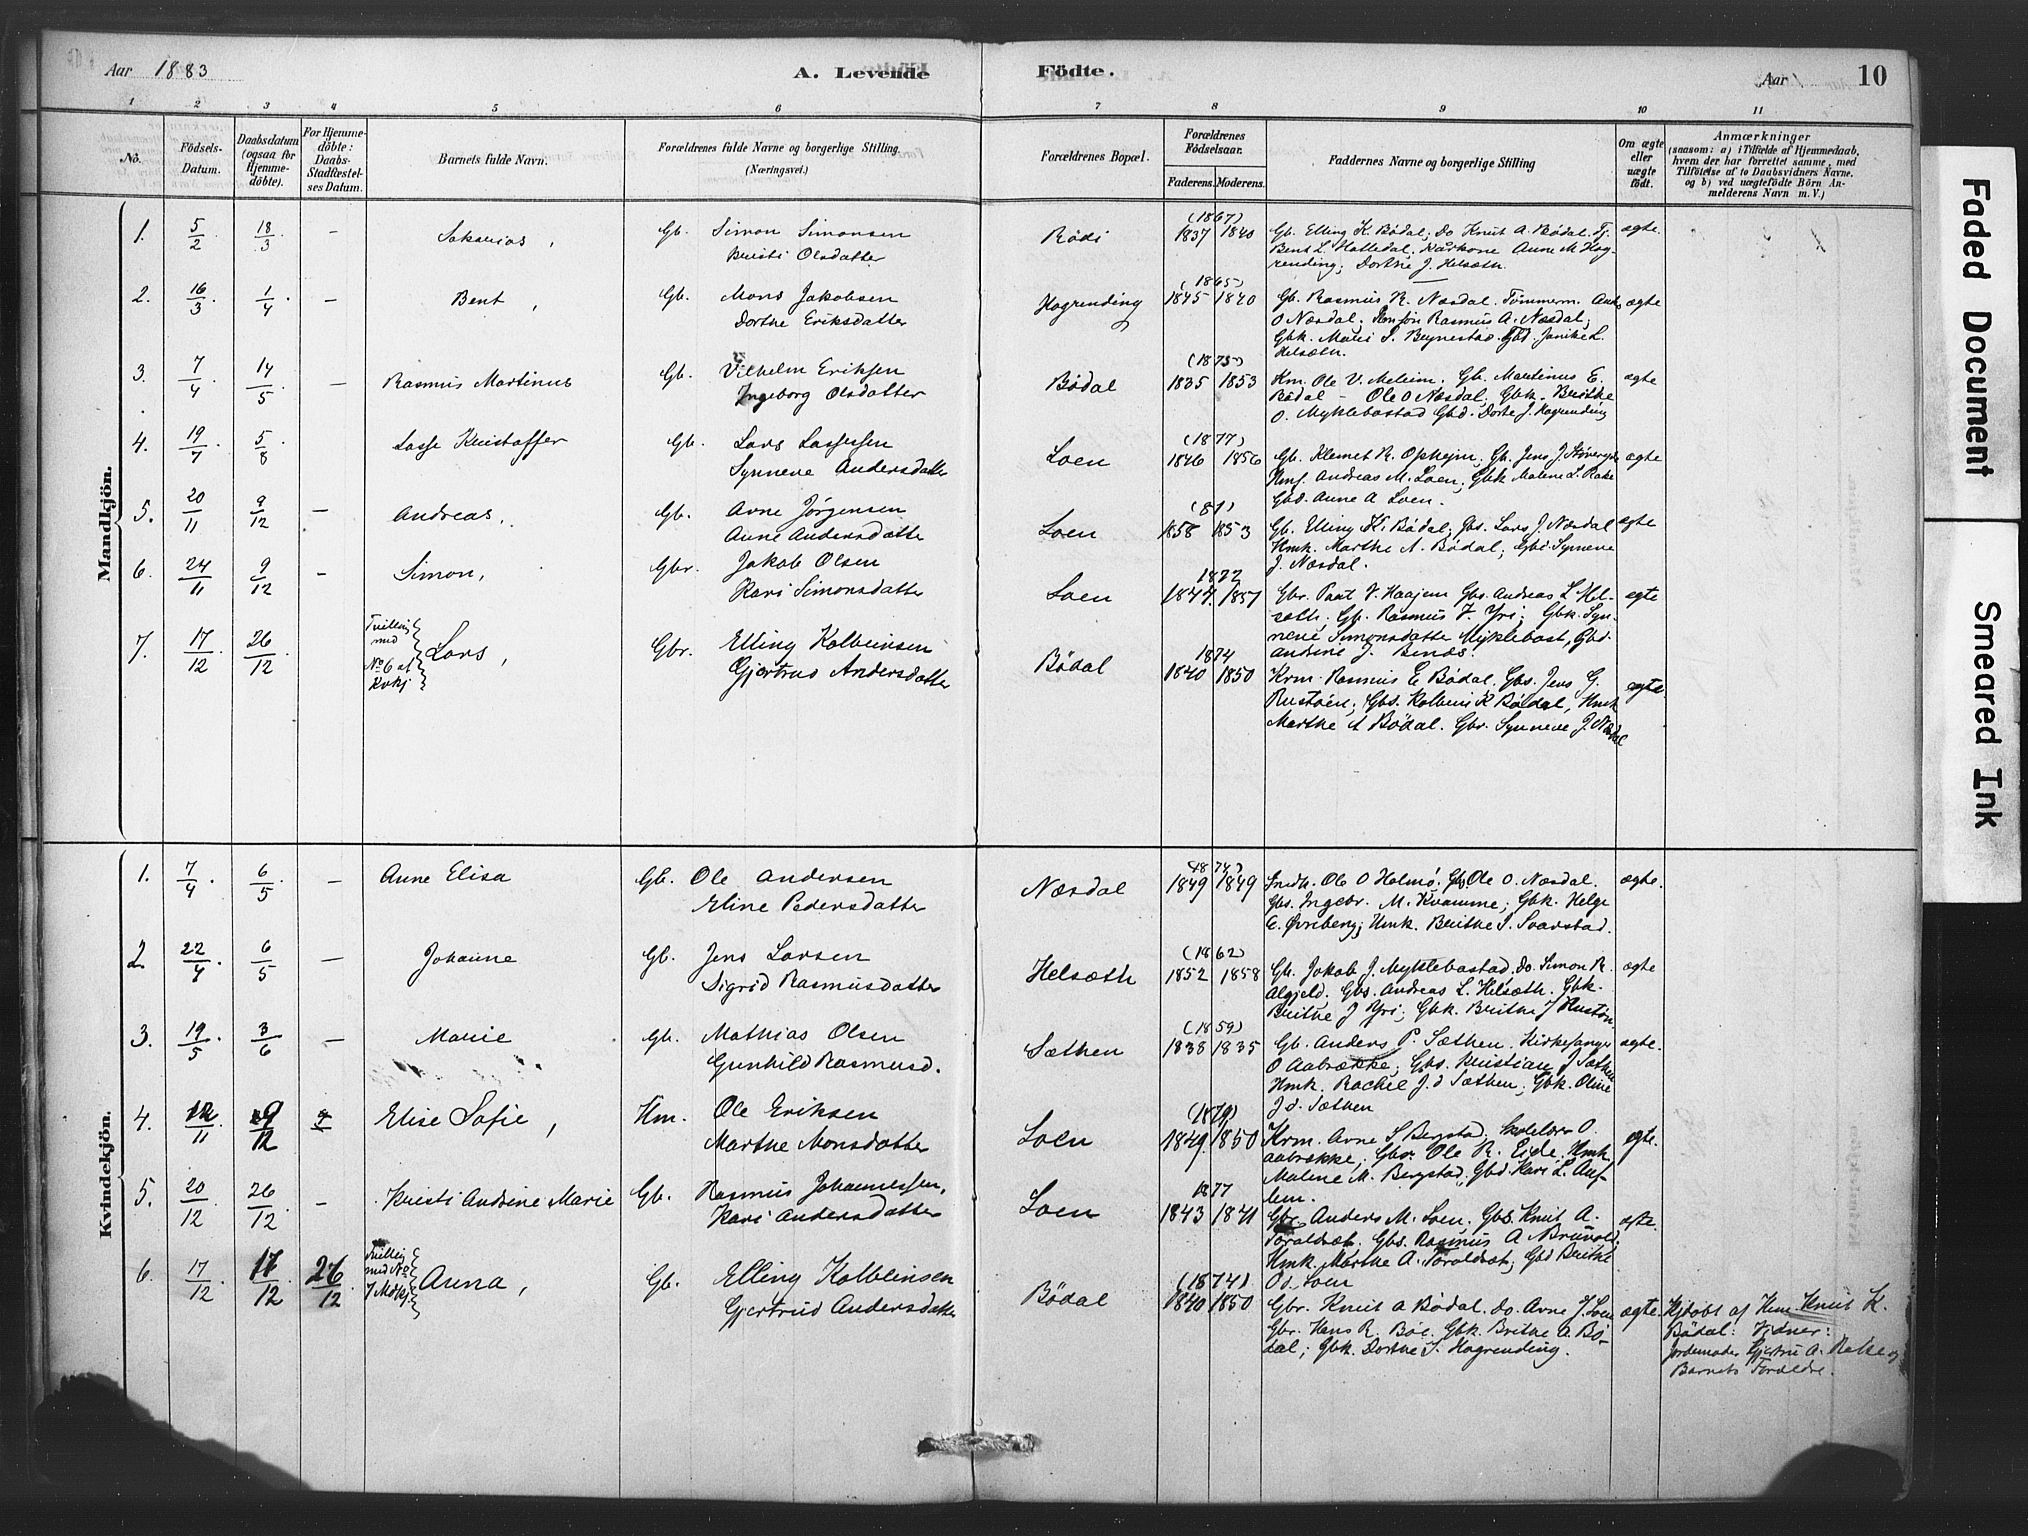 Aar 1883
A. Levende Födte.
Aar
10
1 2 3 4 5 6 7 8 9 10 11
No.
Födsels-Datum.
Daabsdatum (ogsaa for Hjemme-döbte).
For Hjemme-döbte: Daabs-Stadfæstel-ses Datum.
Barnets fulde Navn.
Forældrenes fulde Navne og borgerlige Stilling. (Næringsvei.)
Forældrenes Bopæl.
Forældrenes Födselsaar.
Faderens. Moderens.
Faddernes Navne og borgerlige Stilling
Om ægte eller uægte födt.
Anmærkninger
(saasom: a) i Tilfælde af Hjemmedaab,
hvem der har forrettet samme, med
Tilföielse af to Daabsvidners Navne,
og b) ved uægtefödte Börn An-
melderens Navn m. V.)
Mandkjön.
1. 5/2 18/3 – Sakarias, Gb. Simon Simonsen
Kristi Olsdatter
Rödi (1867) 1837 1840
Gb. Elling K. Bödal, Do Knut A. Bödal. Tj.
Bent L. Anne M. Hog-
rending; Dorthe J. Helsæth.
ægte.
2. 16/3 1/4 – Bent, Gb. Mons Jakobsen
Dorthe Eriksdatter
Hogrending (1865) 1845 1840
Gb. Rasmus R. Næsdal. Tömmerm.
O Næsdal. Rasmus A. Næsdal,
Gbk. Gbd. Janike L.
Helsæth.
ægte
3. 7/4 14/5 – Rasmus Martinus Gb. Vilhelm Eriksen
Ingeborg Olsdatter
Bödal (1875) 1835 1853
Km. Ole V. Melheim. Gb. Martinus E.
Bödal – Ole O Næsdal, Gbk. Brithe
O. Myklebostad Gbd. Dorthe J. Hogrending
ægte
4. 19/7 5/8 Lasse Kristoffer Gb. Lars Lassesen
Synneve Andersdatter
Loen (1877) 1846 1856
Gb. Klemet R. Opheim. Gb. Jens J.
Andreas M. Loen; Gbk Malene L. Rake
Gbd. Anne A Loen.
ægte
5. 20/11 9/12 – Andreas, Gb. Arne Jörgensen
Anne Andersdatter
Loen (81) 1858 1853
Gb. Elling K. Bödal; Gbs. Lars J Næsdal
Hmk. Marthe A. Bödal; Gbd Synneve
J. Næsdal.
ægte
6. 24/11 9/12 – Simon, Gbr. Jakob Olsen
Kari Simonsdatter
Loen 1872 1847 1851
Gbr. Paal V. Haajem Gbs. Andreas L Hel-
sæth; Gb. Rasmus J. Yri; Gbk. Syn-
neve Simonsdatter Myklebost, Gbd.
Andrine J.
ægte
7. 17/12 26/12 Tvilling med No 6 af Kvkj Lars, Gbr. Elling Kolbeinsen
Gjertrud Andersdatter
Bödal 1874 1840 1850
Krm. Rasmus E Bödal, Gbs. Jens G.
Rustöen; Gbs. Kolbein K Bödal, Hmk
Marthe A Bödal. Gbr. Synneve J. Næsdal
ægte
Kvindekjön.
1. 7/4 6/5 – Anne Elisa Gb. Ole Andersen
Eline Pedersdatter
Næsdal (1874) 1849 1849
Ole O Holmö. Gb Ole O. Næsdal.
Gbs. Ingebr. M. Kvamme; Gbk. Helge
E. Övreberg; Hmk. Brithe I. Svarstad.
ægte.
2. 22/4 6/5 – Johanne Gb. Jens Larsen
Sigrid Rasmusdatter
Helsæth (1862) 1852 1858
Gb. Jakob J. Myklebostad, Do. Simon R.
Gbs. Andreas L. Helsæth. Gbk.
Brithe J Yri; Gbk. Brithe J Rustöen
ægte
3. 19/5 3/6 – Marie Gb. Mathias Olsen
Gunhild Rasmusd.
Sæthen (1859) 1838 1835
Gb. Anders P. Sæthen. Kirkesanger
O Aabrække; Gbs. Kristian J Sæthen
Hmk. Rachel J. d Sæthen; Gbk. Oline
J d. Sæthen
ægte.
4. 12/11 9/12 Elise Sofie, Hm. Ole Eriksen
Marthe Monsdatter
Loen (1879) 1849. 1850
Krm. Arne S Bergstad, Skolelærer O.
Aabrække; Gbr Ole R. Eide. Hmk
Malene M. Bergstad; Gbd. Kari L. Auf-
lem.
ægte.
5. 20/12 26/12 – Kristi Andrine Marie Gb. Rasmus Johannessen,
Kari Andersdatter
Loen 1877 1843 1841
Gbr Anders M. Loen, Gbs. Knut A.
Toraldset. Gbs. Rasmus A
Hmk. Marthe A. Toraldset; Gbd Brithe
O d. Loen
ægte.
6. 17/12 17/12 26/12 Tvilling med No 7 Mdkj Anna, Gb. Elling Kolbeinsen
Gjertrud Andersdatter
Bödal (1874) 1840 1850
Gbr. Knut A Bödal, Do. Arne J. Loen
Gbr. Hans R. Böe. Gbk. Brithe A. Bö-
dal; Gbk. Dorthe S. Hogrending.
ægte.
Hjdöbt af Hm. Knut K.
Bödal: Vidner:
Jordemoder Gjertru A. Rake og
Barnets Forældre.
Faded Document
Smeared Ink